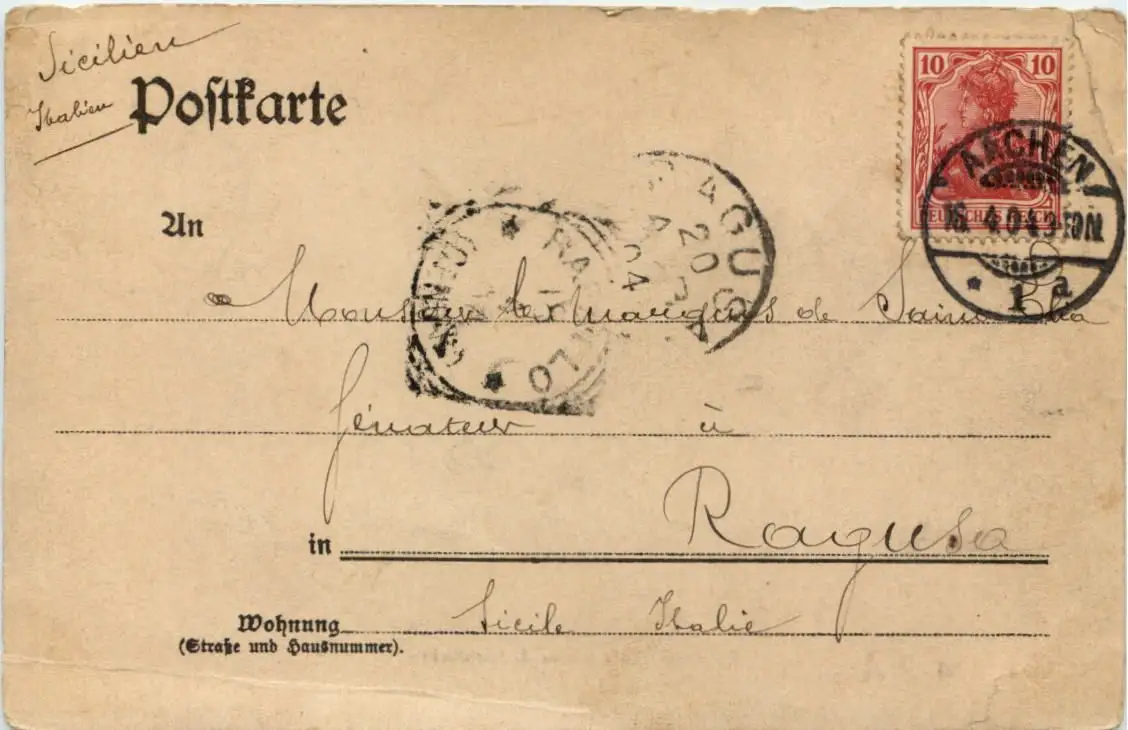 Sicilien
Italien
Postkarte
10 10
DEUTSCHES REICH
AACHEN
16.4.04.9-10N.
* 1 a
RAGUSA
20
4
04
An
Monsieur le Marquis de Saint
Sénateur à
in Ragusa
Wohnung Sicile Italie
(Straße und Hausnummer).